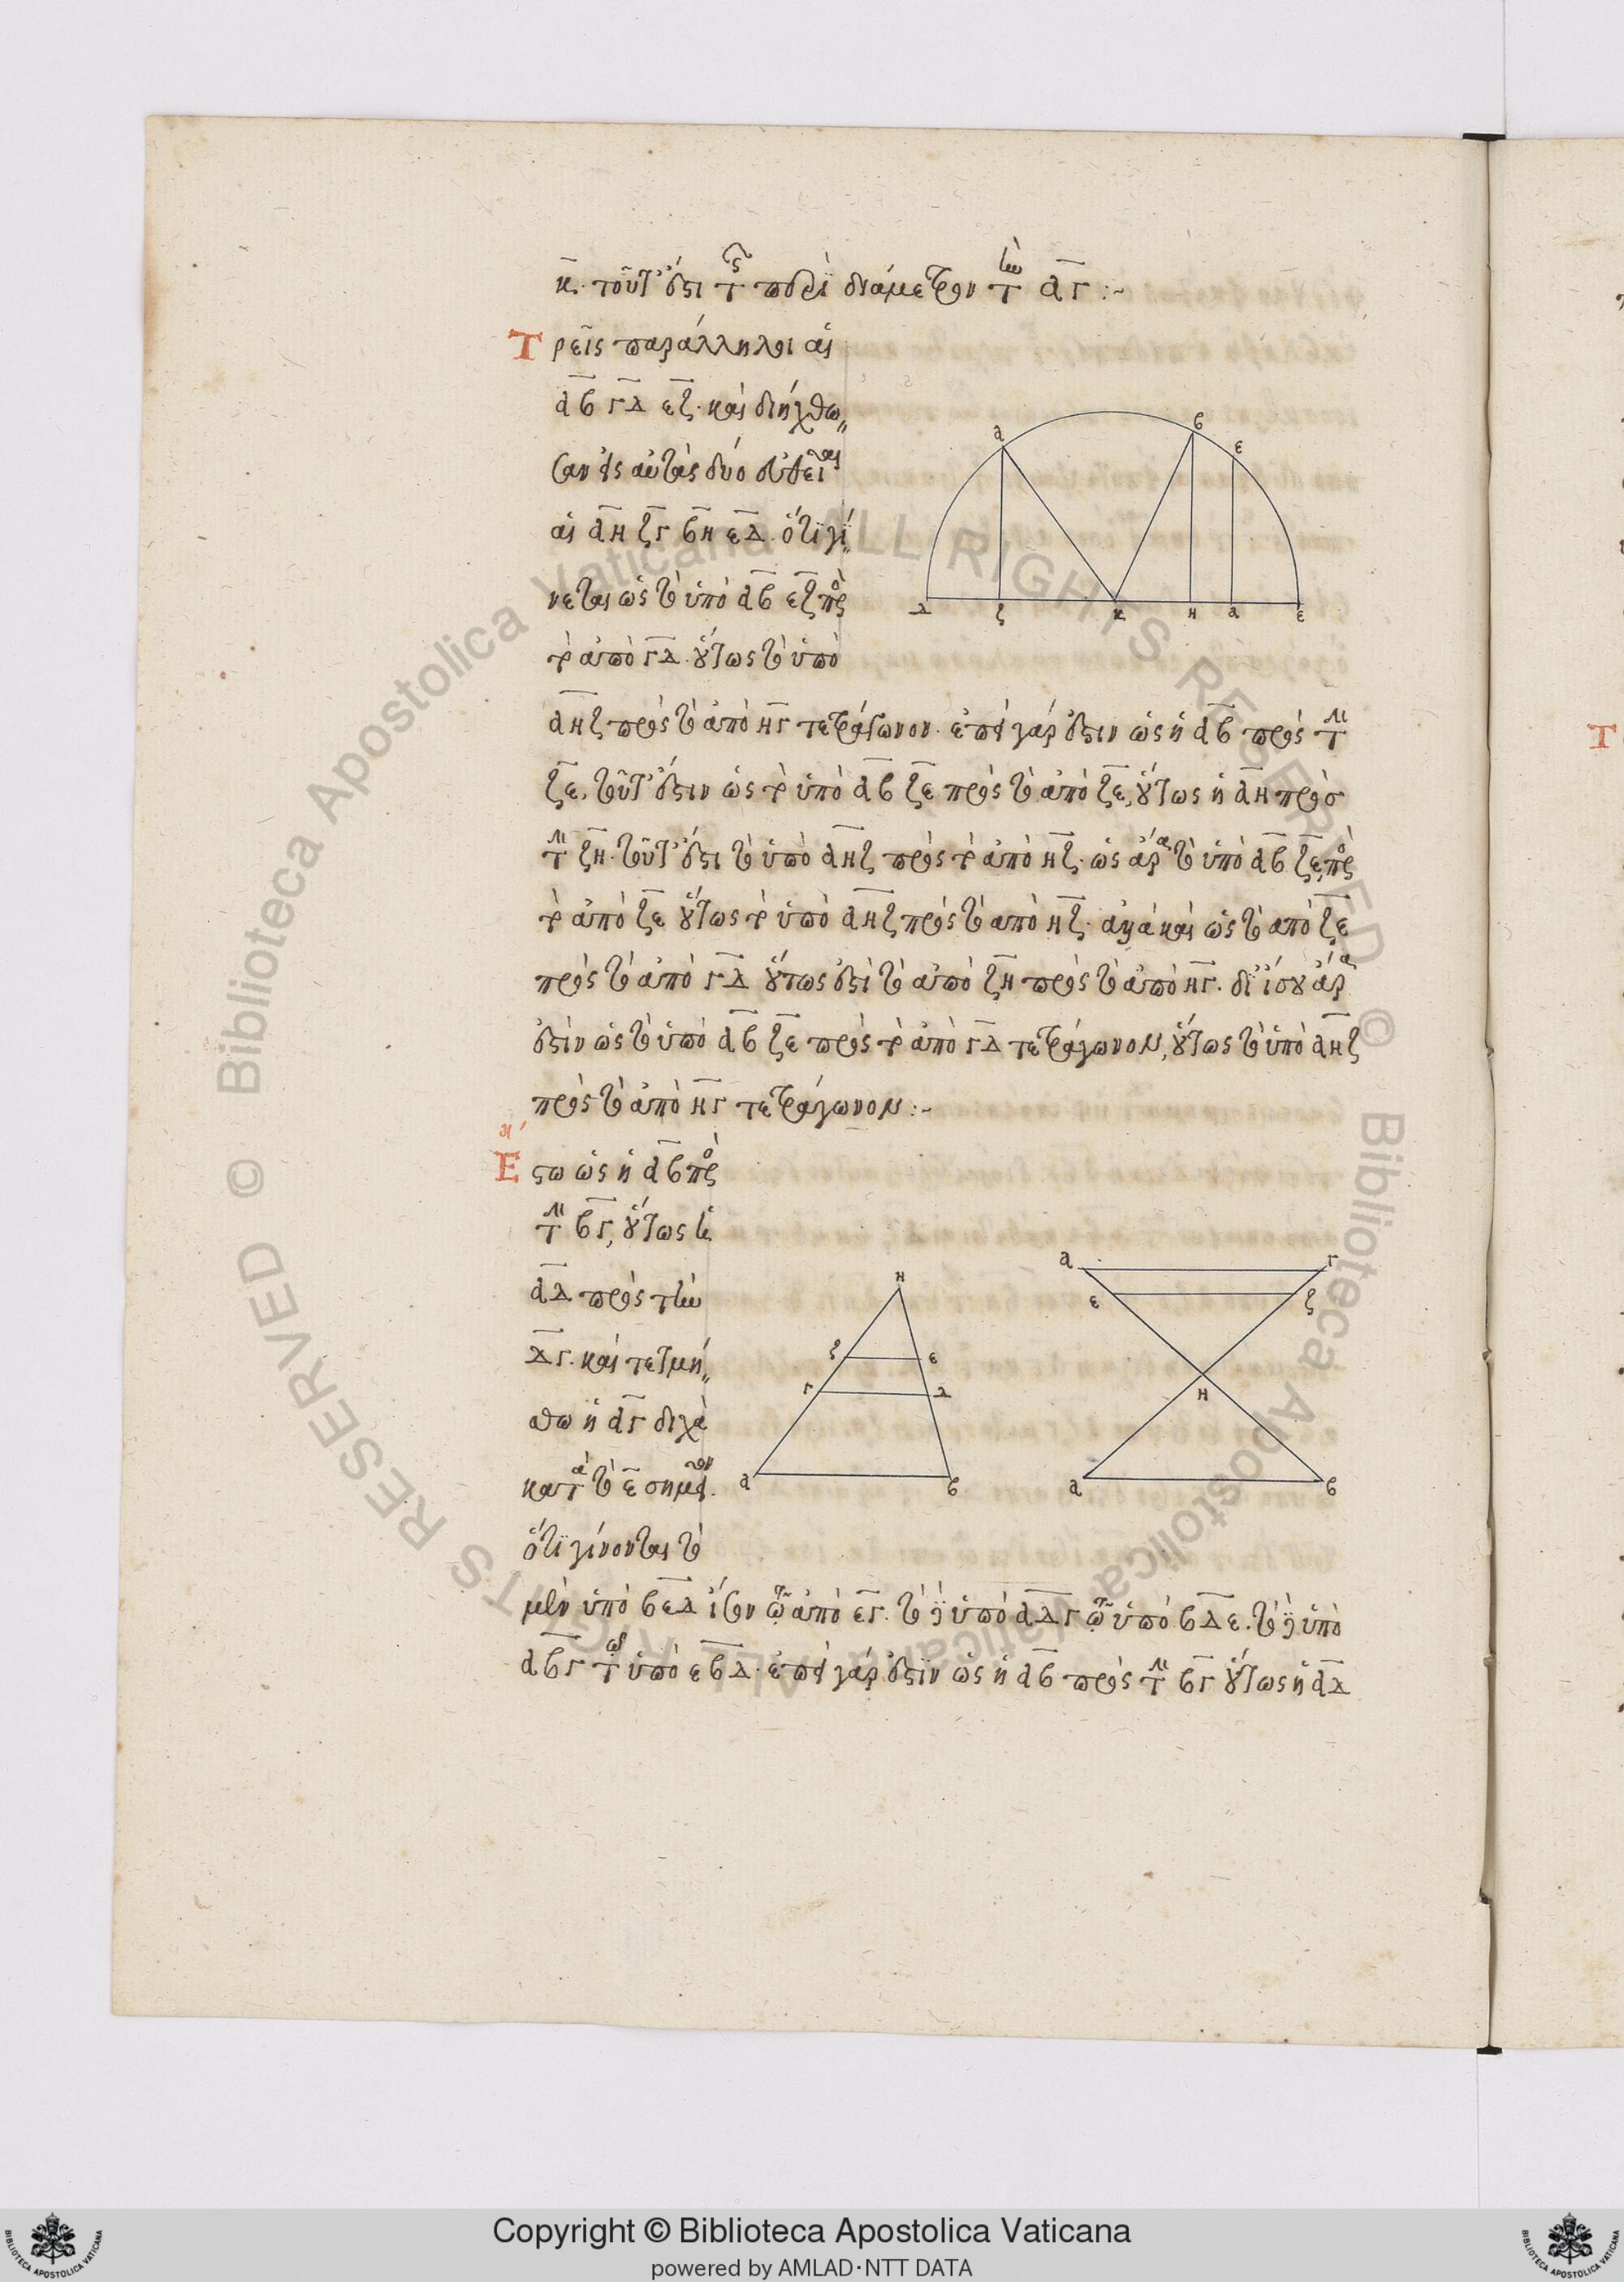 κ. τοῦτ' ἔστι τῆς περὶ διάμετρον τὴν ΑΓ :-
Τρεῖς παράλληλοι αἱ
ΑΒ ΓΔ ΕΖ. καὶ διήχθω
σαν εἰς αὐτὰς δύο εὐθεῖαι
αἱ ΑΗ ΖΓ ΒΗ ΕΔ. ὅτι γί
νεται ὡς τὸ ὑπὸ ΑΒ ΕΖ πρὸς
τὸ ἀπὸ ΓΔ. οὕτως τὸ ὑπὸ
ΑΗΖ πρὸς τὸ ἀπὸ ΗΓ τετράγωνον. ἐπεὶ γάρ ἐστιν ὡς ἡ ΑΒ πρὸς τὴν
ΖΕ, τοῦτ' ἔστιν ὡς τὸ ὑπὸ ΑΒ ΖΕ πρὸς τὸ ἀπὸ ΖΕ, οὕτως ἡ ΑΗ πρὸς
τὴν ΖΗ. τοῦτ' ἔστι τὸ ὑπὸ ΑΗΖ πρὸς τὸ ἀπὸ ΗΖ. ὡς ἄρα τὸ ὑπὸ ΑΒ ΖΕ, πρὸς
τὸ ἀπὸ ΖΕ οὕτως τὸ ὑπὸ ΑΗΖ πρὸς τὸ ἀπὸ ΗΖ. ἀλλὰ καὶ ὡς τὸ ἀπὸ ΖΕ
πρὸς τὸ ἀπὸ ΓΔ οὕτως ἐστὶ τὸ ἀπὸ ΖΗ πρὸς τὸ ἀπὸ ΗΓ. δι' ἴσου ἄρα
ἐστὶν ὡς τὸ ὑπὸ ΑΒ ΖΕ πρὸς τὸ ἀπὸ ΓΔ τετράγωνον, οὕτως τὸ ὑπὸ ΑΗΖ
πρὸς τὸ ἀπὸ ΗΓ τετράγωνον :-
Ἔστω ὡς ἡ ΑΒ πρὸς
τὴν ΒΓ, οὕτως ἡ
ΑΔ πρὸς τὴν
ΔΓ. καὶ τετμή
σθω ἡ ΑΓ δίχα
κατὰ τὸ Ε σημεῖον.
ὅτι γίνονται τὸ
μὲν ὑπὸ ΒΕΔ ἴσον τῷ ἀπὸ ΕΓ. τὸ δὲ ὑπὸ ΑΔΓ τῷ ὑπὸ ΒΔΕ. τὸ δὲ ὑπὸ
ΑΒΓ τῷ ὑπὸ ΕΒΔ. ἐπεὶ γάρ ἐστιν ὡς ἡ ΑΒ πρὸς τὴν ΒΓ οὕτως ἡ ΑΔ
α β ε
δ ζ κ η α ε
η
ζ ε
γ δ
α β
α γ
ε ζ
η
α β
© Biblioteca Apostolica Vaticana ALL RIGHTS RESERVED
© Biblioteca Apostolica Vaticana ALL RIGHTS RESERVED
Copyright © Biblioteca Apostolica Vaticana
powered by AMLAD·NTT DATA
BIBLIOTECA APOSTOLICA VATICANA
BIBLIOTECA APOSTOLICA VATICANA